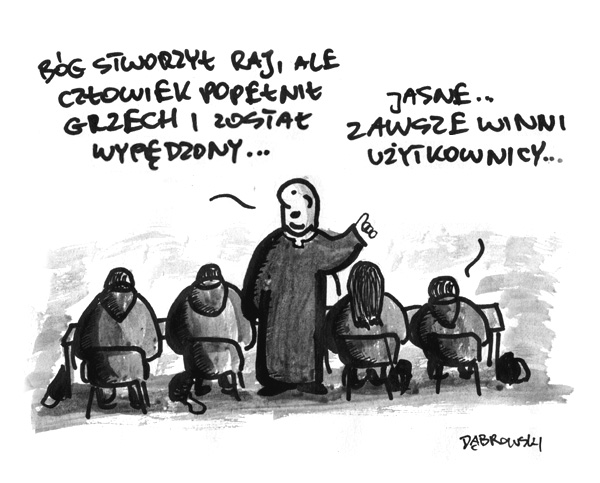 BÓG STWORZYŁ RAJ, ALE
CZŁOWIEK POPEŁNIŁ
GRZECH I ZOSTAŁ
WYPĘDZONY...
JASNE...
ZAWSZE WINNI
UŻYTKOWNICY...
DĄBROWSKI